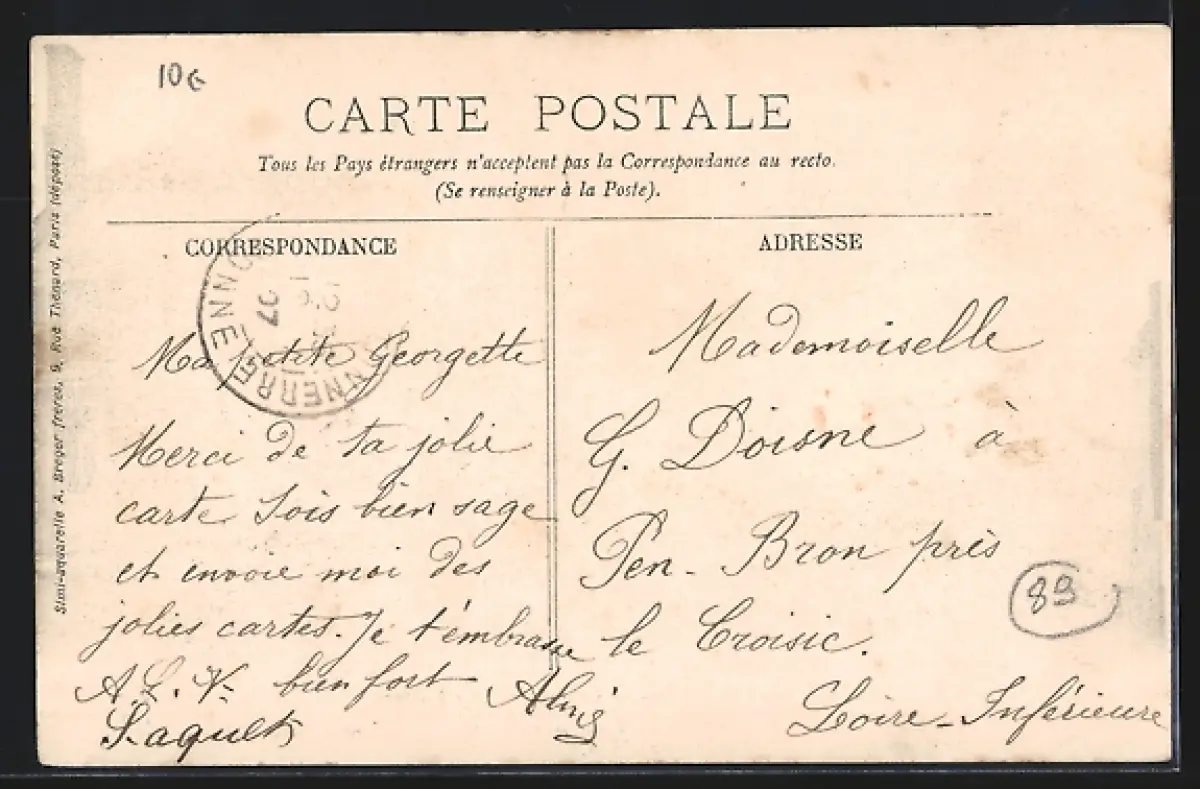 10€
CARTE POSTALE
Tous les Pays étrangers n'acceptent pas la Correspondance au recto.
(Se renseigner à la Poste).
CORRESPONDANCE
Ma petite Georgette
Merci de ta jolie
carte Sois bien sage
et envoie moi des
jolies cartes. Je t'embrasse
bien fort
A. L. V.
ADRESSE
Mademoiselle
G. Doisne à
Pen-Bron près
le Croisic.
Loire-Inférieure
89
07
Simi-aquarelle A. Breger frères, 9, Rue Thénard, Paris (déposé)